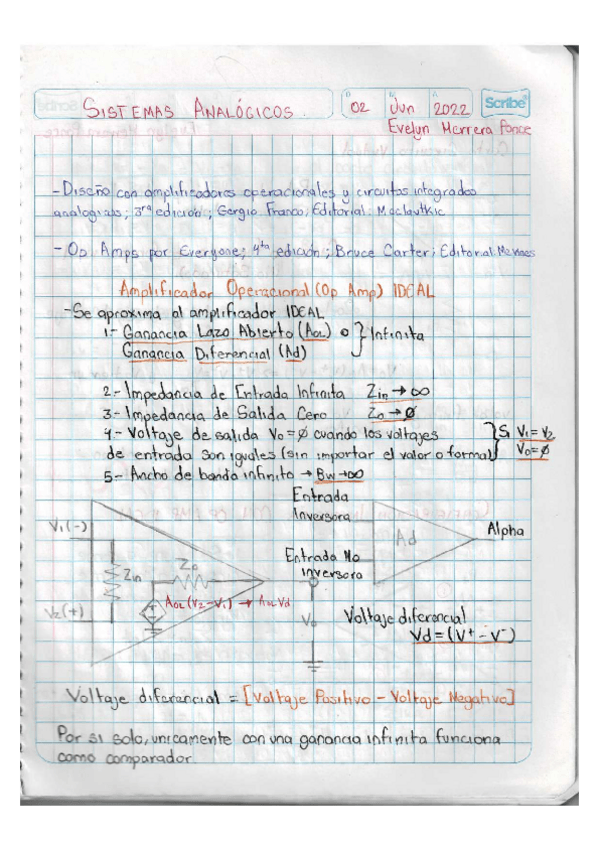 SISTEMAS ANALÓGICOS.
D 02 Jun A 2022
Scribe
Evelyn Herrera Ponce
-Diseño con amplificadores operacionales y circuitos integrados
analogicos; 3ra edición; Sergio Franco, Editorial: MacLawtkic
- Op Amps por Everyone; 4ta edición; Bruce Carter; Editorial:
Amplificador Operacional (Op Amp) IDEAL
-Se aproxima al amplificador IDEAL
1.- Ganancia Lazo Abierto (AOL) o } Infinita
Ganancia Diferencial (Ad)
2.- Impedancia de Entrada Infinita Zin → ∞
3.- Impedancia de Salida Cero Zo → Ø
4.- Voltaje de salida Vo = Ø cuando los voltajes } Si V1 = V2
de entrada son iguales (sin importar el valor o forma) Vo = Ø
5.- Ancho de banda infinito → BW→∞
Entrada
Inversora
V1(-)
Zin
Zo
V2(+)
AOL(V2-V1) → AOL Vd
Vo
Ad
Alpha
Entrada No
inversora
Voltaje diferencial
Vd = (V+ - V-)
Voltaje diferencial = [Voltaje Positivo - Voltaje Negativo]
Por si solo, unicamente con una ganancia infinita funciona
como comparador.